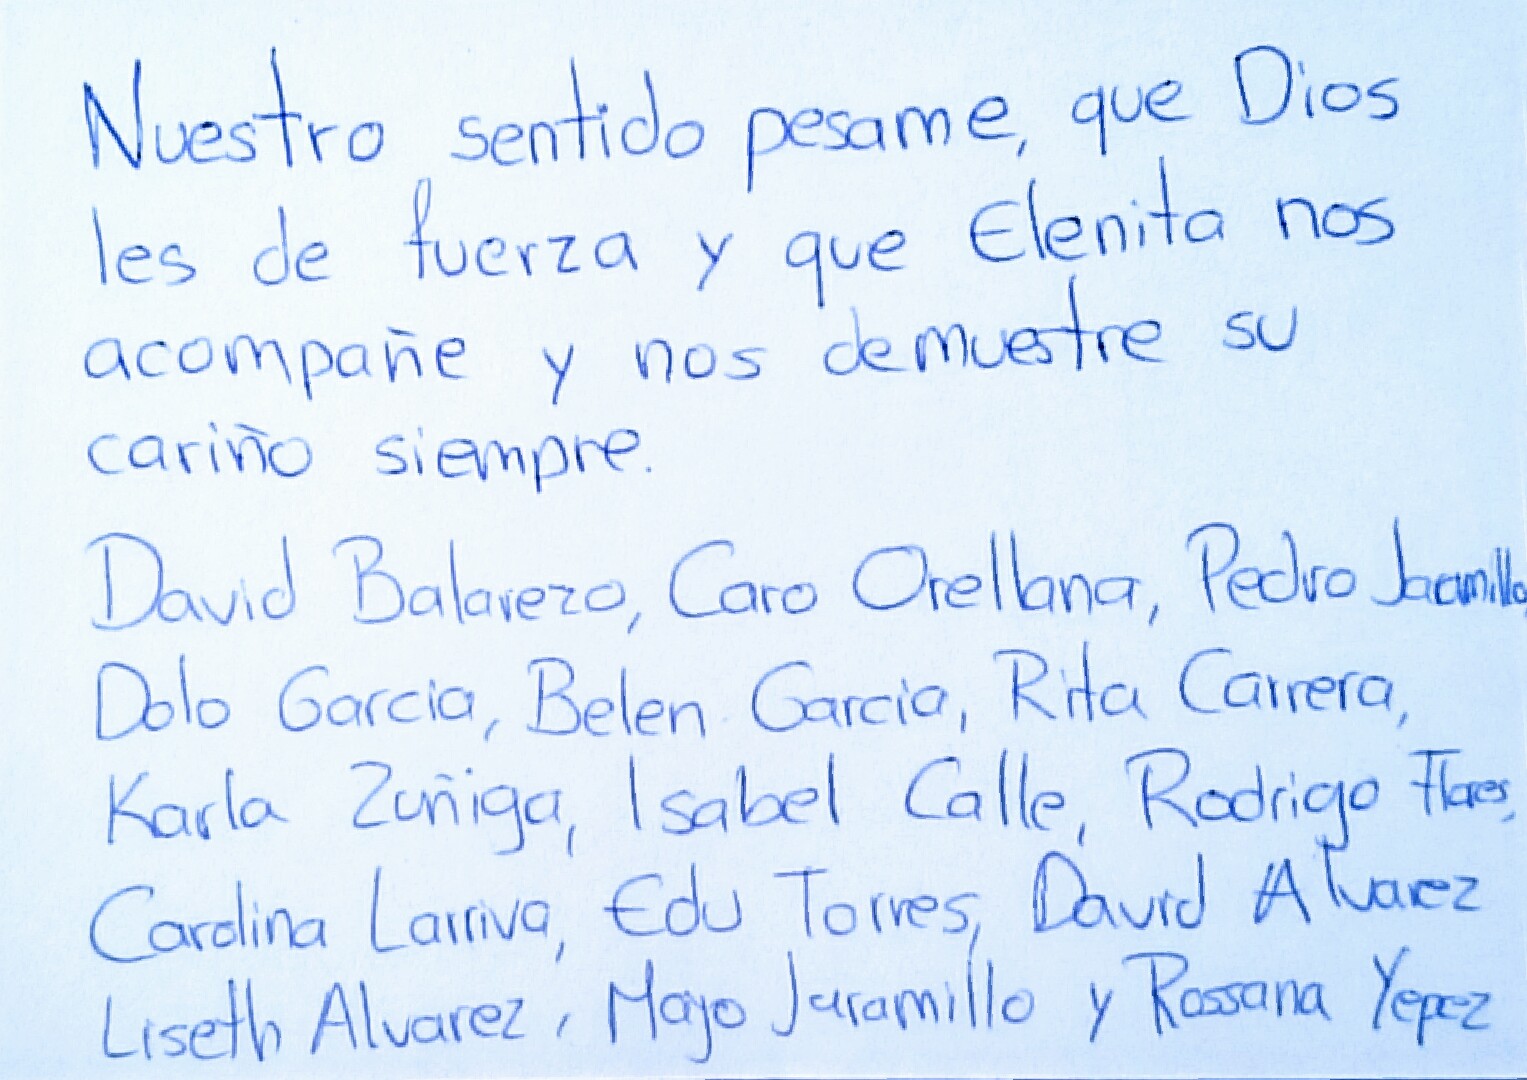 Nuestro sentido pesame, que Dios
les de fuerza y que Elenita nos
acompañe y nos demuestre su
cariño siempre.
David Balarezo, Caro Orellana, Pedro Jaramillo,
Dolo Garcia, Belen Garcia, Rita Carrera,
Karla Zuñiga, Isabel Calle, Rodrigo Flores,
Carolina Larriva, Edu Torres, David Alvarez
Liseth Alvarez, Mayo Jaramillo y Rossana Yepez